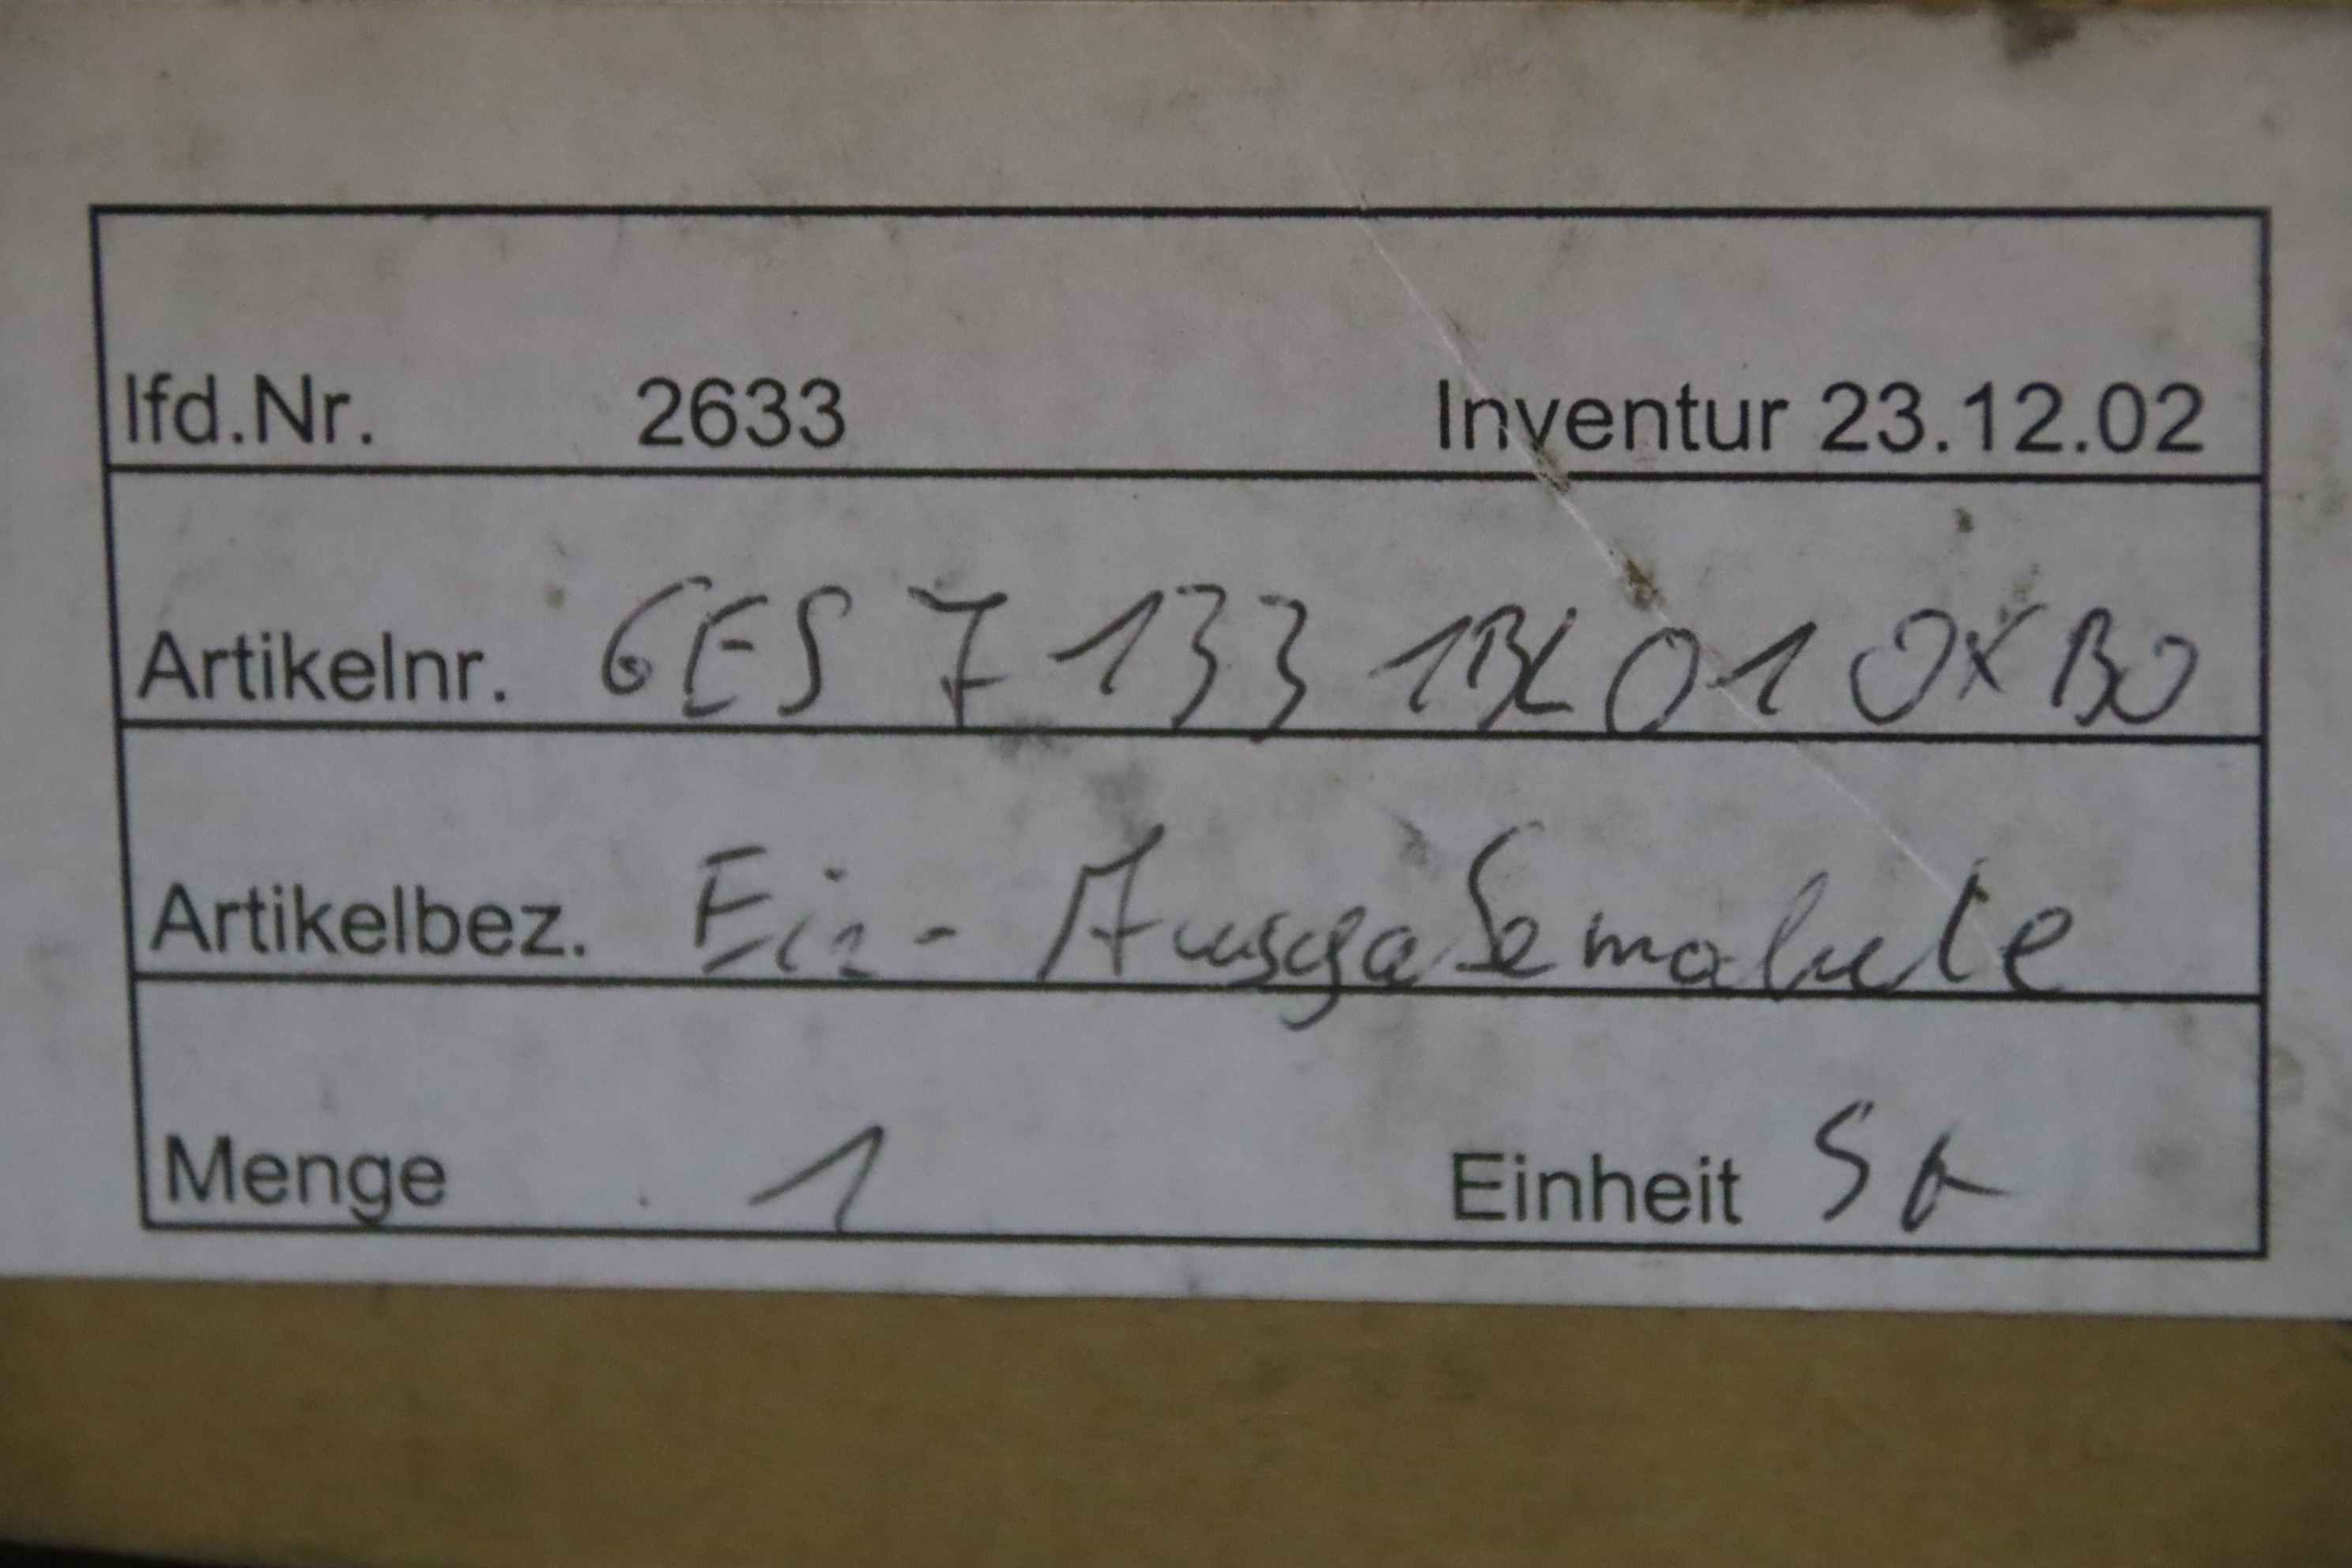 lfd.Nr. 2633 Inventur 23.12.02
Artikelnr. 6ES 7 133 1BL01 0XB0
Artikelbez. Ein- Ausgabemodule
Menge 1 Einheit St